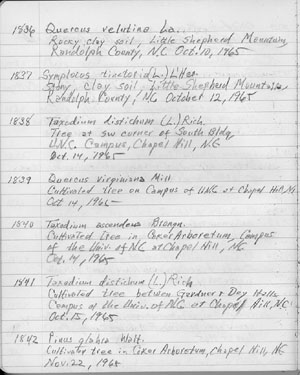 1836 Quercus velutina La.
Rocky clay soil, Little Shepherd Mountain,
Randolph County, NC Oct. 10, 1965
1837 Symplocos tinctoria (L.) L'Her.
Stony clay soil, Little Shepherd Mountain,
Randolph County, NC October 12, 1965
1838 Taxodium distichum (L.) Rich.
Tree at SW corner of South Bldg.
U.N.C. Campus, Chapel Hill, NC
Oct. 14, 1965
1839 Quercus virginiana Mill
Cultivated tree on Campus of UNC at Chapel Hill, NC
Oct 14, 1965
1840 Taxodium ascendens Brongn.
Cultivated tree in Coker Arboretum, Campus
of the Univ. of NC at Chapel Hill, NC
Oct. 14, 1965
1841 Taxodium distichum (L.) Rich.
Cultivated tree between Gardner & Dey Halls
Campus of the Univ. of NC at Chapel Hill, NC
Oct. 15, 1965
1842 Pinus glabra Walt.
Cultivated tree in Coker Arboretum, Chapel Hill, NC
Nov. 22, 1965